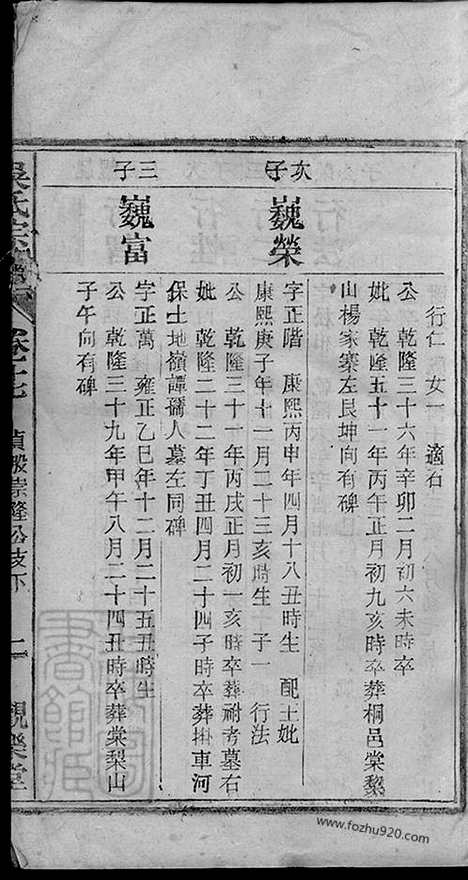 行仁　女一　適石
公　乾隆三十六年辛卯二月初六未時卒
妣　乾隆五十一年丙午正月初九亥時卒葬桐邑棠棃
山楊家寨左艮坤向有碑
次子
巍榮
字正階　康熙丙申年四月十八丑時生　配王妣
康熙庚子年十一月二十三亥時生　子一　行法
公　乾隆三十一年丙戌正月初一亥時卒葬祔考墓右
妣　乾隆二十二年丁丑四月二十四子時卒葬掛車河
保土地嶺譚礄人墓左同碑
三子
巍富
字正萬　雍正乙巳年十二月二十五丑時生
公　乾隆三十九年甲午八月二十四丑時卒葬棠梨山
子午向有碑
吳氏宗譜
卷十七　貞股崇隆公支下
二　觀樂堂
書館
www.fozhu920.com